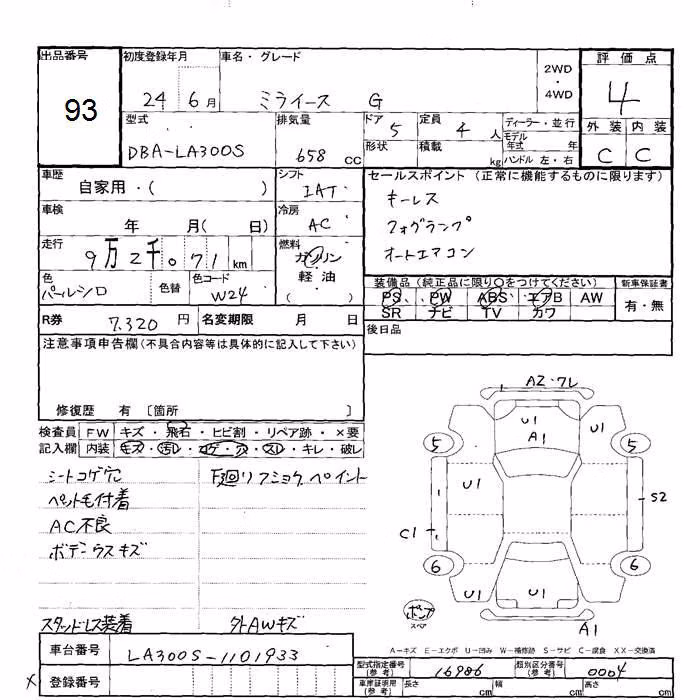 出品番号
93
初度登録年月
24 6月
車名・グレード
ミライース G
2WD
・
4WD
評価点
4
外装 内装
C C
型式
DBA-LA300S
排気量
658 cc
ドア 5
形状
定員 4 人
積載 kg
ディーラー・並行
モデル年式 年
ハンドル 左・右
車歴
自家用・( )
シフト
IAT
セールスポイント (正常に機能するものに限ります)
キーレス
フォグランプ
オートエアコン
車検
年 月( 日)
冷房
AC
走行
9万2千071 km
燃料
ガソリン
・
軽油
( )
色
パールシロ
色替
色コード
W24
装備品 (純正品に限り○をつけてください)
PS PW ABS エアB AW
SR ナビ TV カワ
新車保証書
有・無
R券 7,320 円
名変期限 月 日
後日品
注意事項申告欄(不具合内容等は具体的に記入して下さい)
修復歴 有 〔箇所 〕
検査員 FW キズ・飛石・ヒビ割・リペア跡・×要
記入欄 内装 キズ・汚レ・コゲ・穴・スレ・キレ・破レ
シートコゲ穴
ペット毛付着
AC不良
ボデーウスキズ
スタッドレス装着
下廻リフショク ペイント
外AWキズ
A2・ワレ
U1
A1
U1
5
5
U1
S2
C1
6
6
U1
U1
U1
A1
ポンプ
スペア
A-キズ E-エクボ U-凹み W-補修跡 S-サビ C-腐食 XX-交換済
車台番号 LA300S-1101933
登録番号
型式指定番号
(参考)
16986
類別区分番号
(参考)
0004
車庫証明用
(参考)
長さ cm
幅 cm
高さ cm